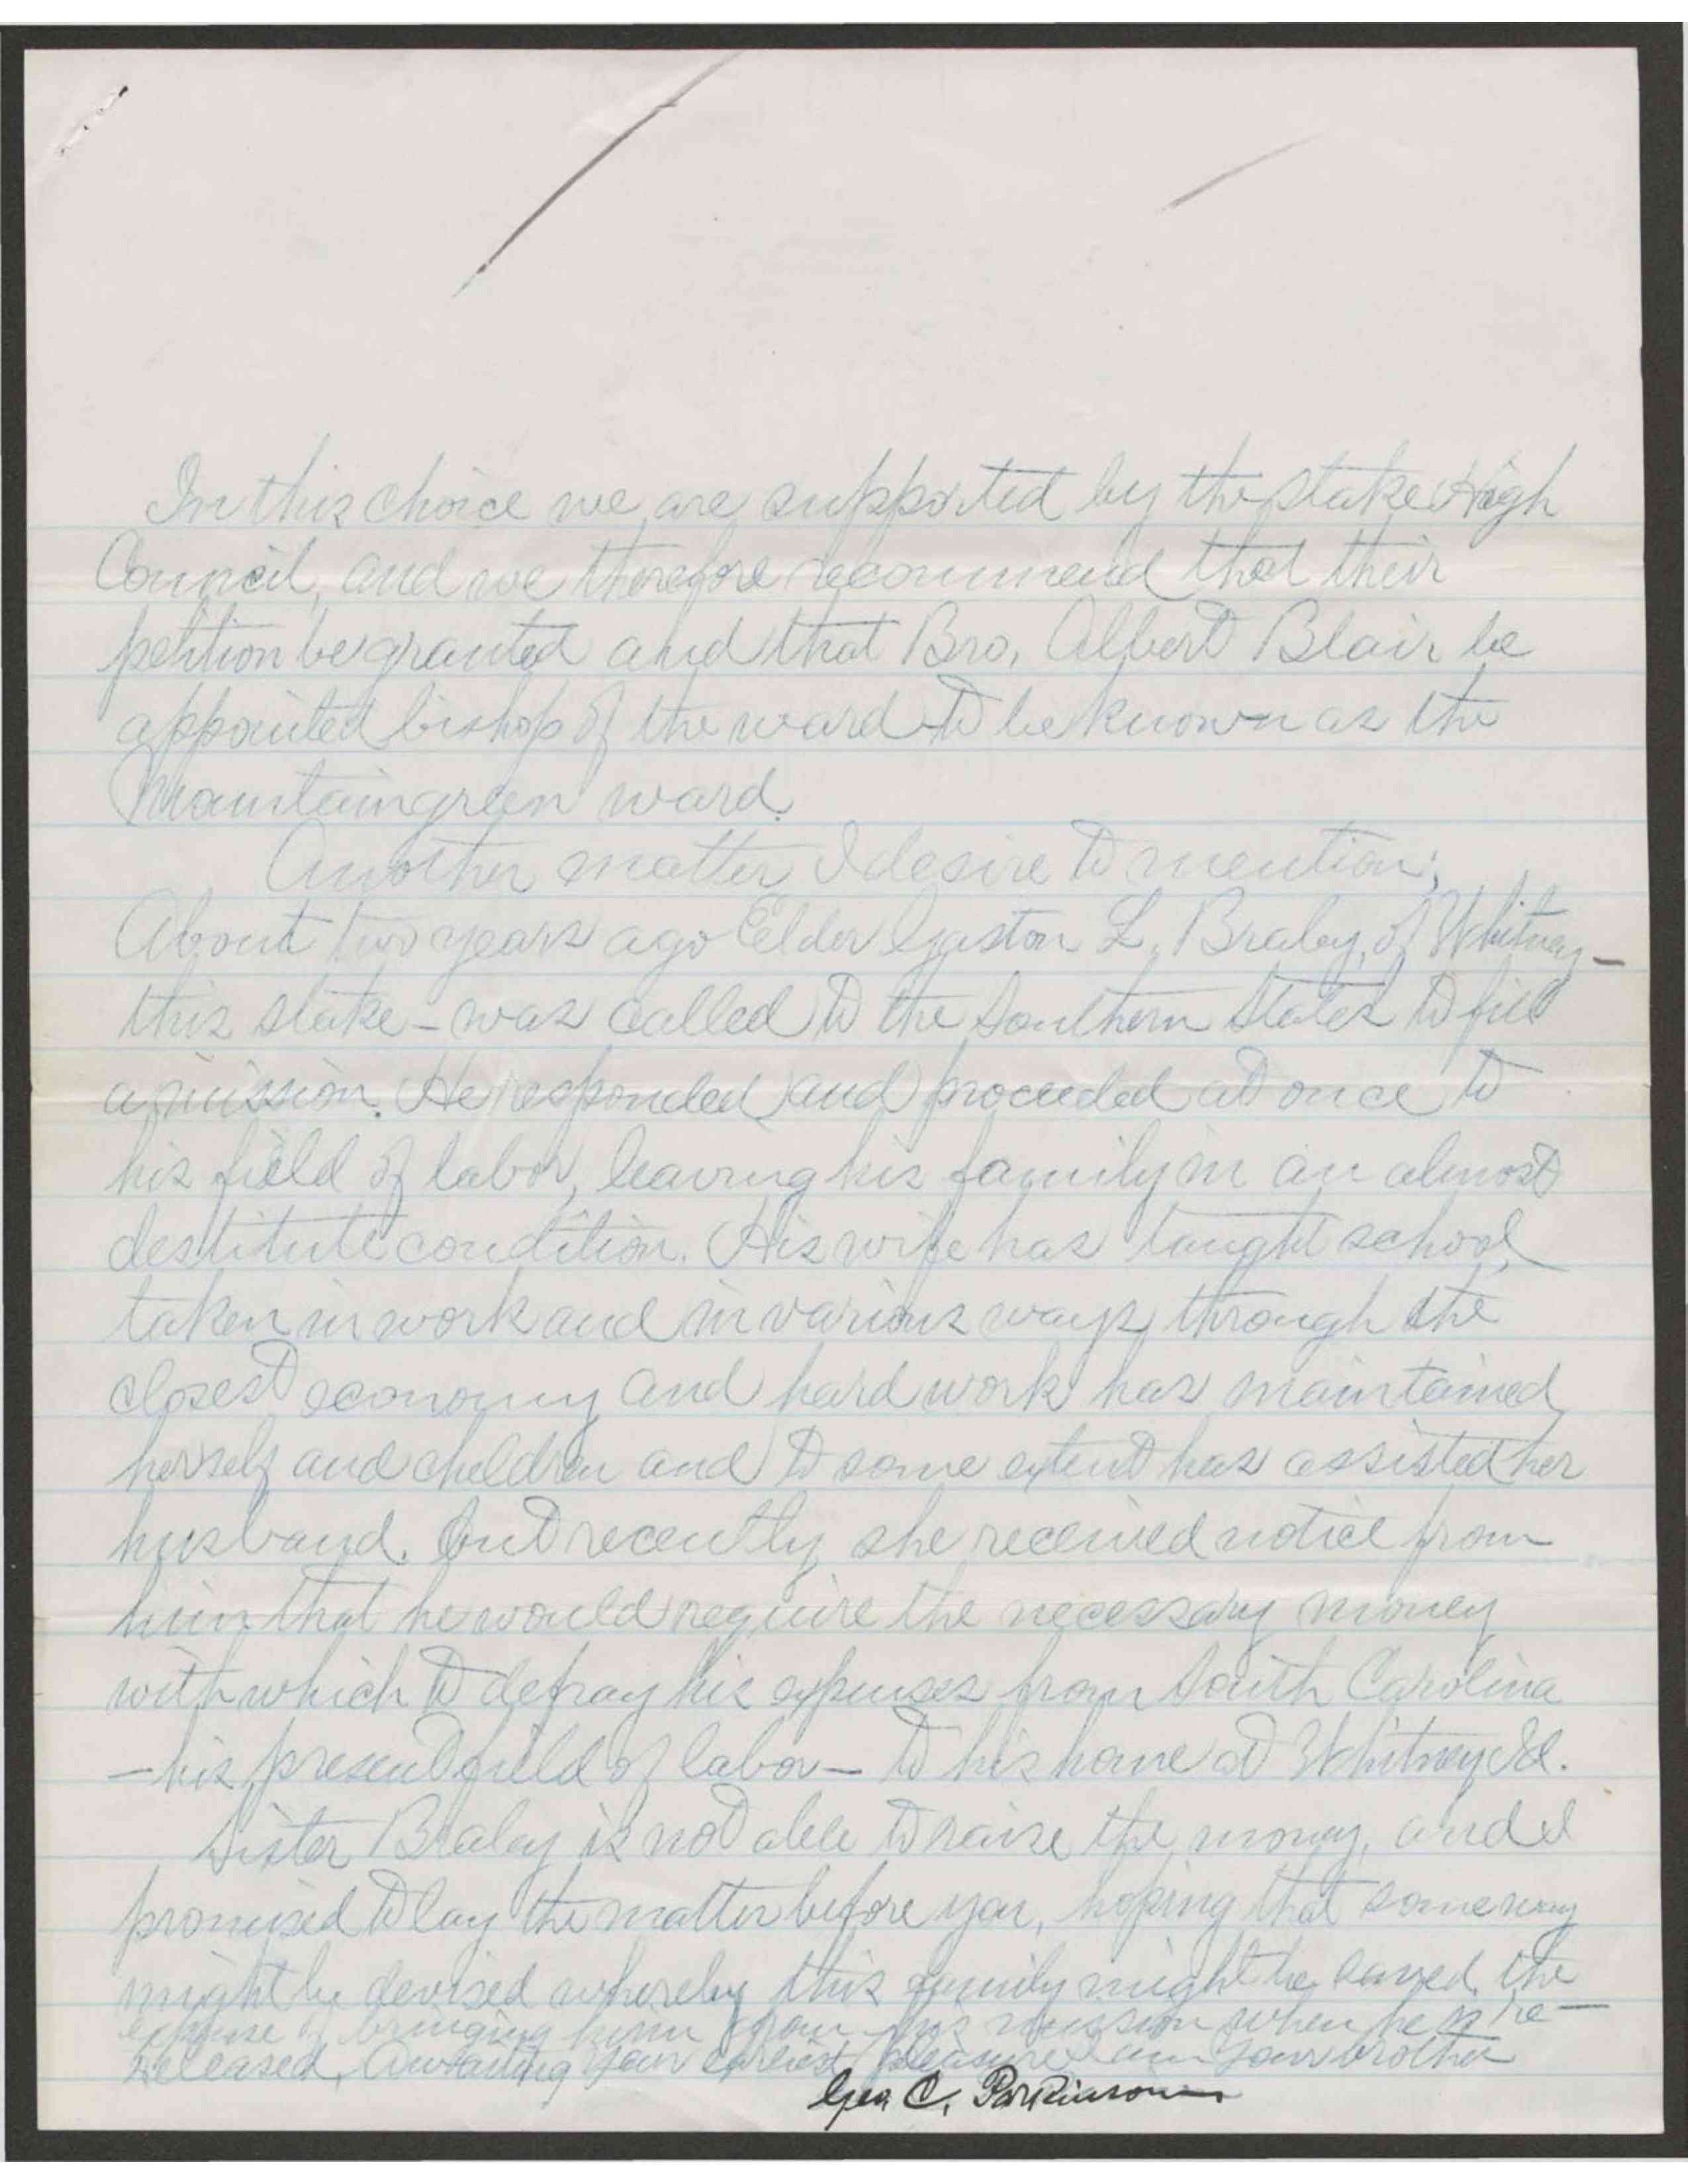 In this choice we are supported by the stake High
Council, and we therefore recommend that their
petition be granted and that Bro. Albert Blair be
appointed bishop of the ward to be known as the
Mountaingreen ward.
Another matter I desire to mention;
About two years ago Elder Gaston L. Braley, of Whitney—
this stake — was called to the Southern States to fill
a mission. He responded and proceeded at once to
his field of labor, leaving his family in an almost
destitute condition. His wife has taught school,
taken in work and in various ways, through the
closest economy and hard work has maintained
herself and children and to some extent has assisted her
husband. But recently she received notice from
him that he would require the necessary money
with which to defray his expenses from South Carolina
— his present field of labor — to his home at Whitney Id.
Sister Braley is not able to raise the money, and I
promised to lay the matter before you, hoping that some way
might be devised whereby this family might be saved the
expense of bringing him from his mission when he is re—
released. Awaiting your earliest pleasure I am your brother
Geo C. Parkinson